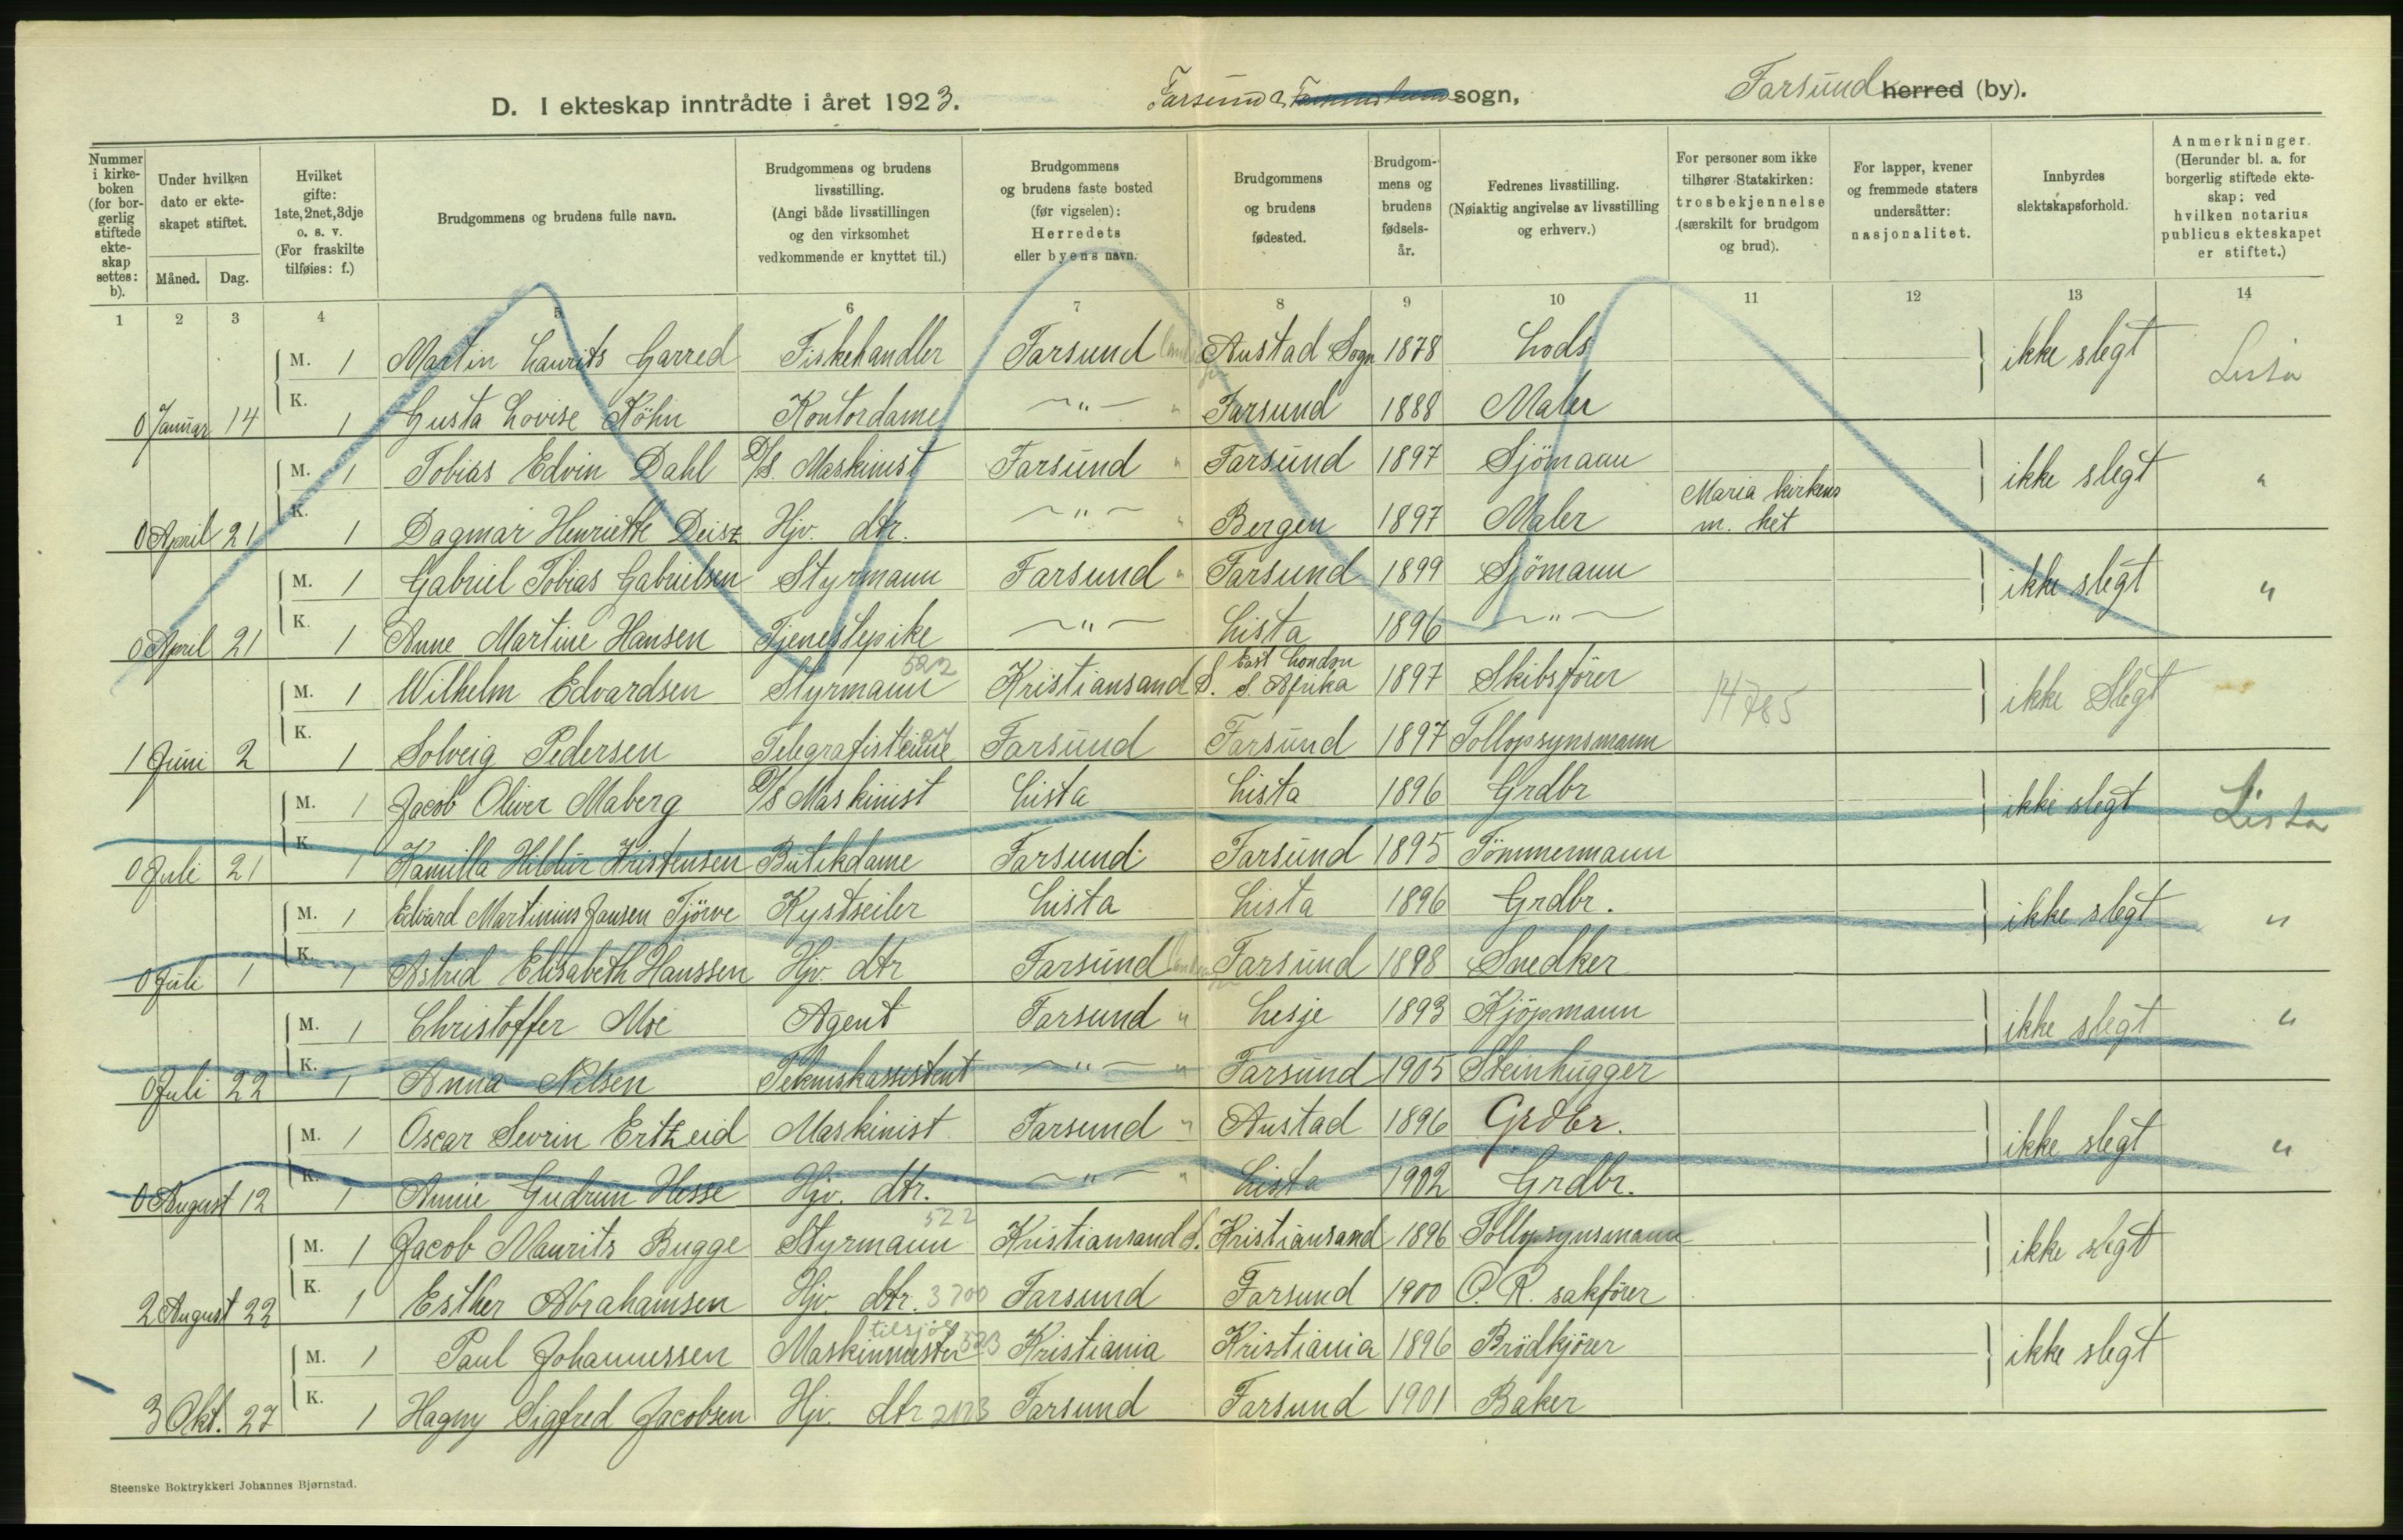 D. I ekteskap inntrådte i året 1923. Farsund sogn, Farsund herred (by).
Nummer i kirkeboken (for borgerlig stiftede ekteskap settes: b).
Under hvilken dato er ekteskapet stiftet.
Måned. Dag.
Hvilket gifte: 1ste, 2net, 3dje o. s. v. (For fraskilte tilføies: f.)
Brudgommens og brudens fulle navn.
Brudgommens og brudens livsstilling. (Angi både livsstillingen og den virksomhet vedkommende er knyttet til.)
Brudgommens og brudens faste bosted (før vigselen): Herredets eller byens navn.
Brudgommens og brudens fødested.
Brudgommens og brudens fødselsår.
Fedrenes livsstilling. (Nøiaktig angivelse av livsstilling og erhverv.)
For personer som ikke tilhører Statskirken: trosbekjennelse (særskilt for brudgom og brud).
For lapper, kvener og fremmede staters undersåtter: nasjonalitet.
Innbyrdes slektskapsforhold.
Anmerkninger. (Herunder bl. a. for borgerlig stiftede ekteskap: ved hvilken notarius publicus ekteskapet er stiftet.)
1 2 3 4 5 6 7 8 9 10 11 12 13 14
M. 1 Martin Laurits Garred Fiskehandler Farsund land Austad Sogn 1878 Lods ikke slegt Lista
0 Januar 14 K. 1 Gusta Lovise Köhn Kontordame —"— " Farsund 1888 Maler
M. 1 Tobias Edvin Dahl D/S. Maskinist Farsund " Farsund 1897 Sjömann ikke slegt "
0 April 21 K. 1 Dagmar Henriette Deisz Hjv. dtr. —"— " Bergen 1897 Maler Maria kirkens m. het
M. 1 Gabriel Tobias Gabrielsen Styrmann Farsund " Farsund 1899 Sjömann ikke slegt "
0 April 21 K. 1 Anne Martine Hansen Tjenestepike —"— Lista 1896 —"—
M. 1 Wilhelm Edvardsen Styrmann 522 Kristiansand S. East London S. Afrika 1897 Skibsförer 14785 ikke Slegt
1 Juni 2 K. 1 Solveig Pedersen Telegrafistinne Farsund Farsund 1897 Tollopsynsmann
M. 1 Jacob Oliver Maberg D/S Maskinist Lista Lista 1896 Grdbr ikke slegt Lista
0 Juli 21 K. 1 Kamilla Hildur Kristensen Butikdame Farsund Farsund 1895 Tömmermann
M. 1 Edvard Martinius Jansen Tjörve Kystseiler Lista Lista 1896 Grdbr. ikke slegt "
0 Juli 1 K. 1 Astrid Elisabeth Hanssen Hjv. dtr Farsund land Farsund 1898 Snedker
M. 1 Christoffer Moe Agent Farsund " Lesje 1893 Kjöpmann ikke slegt "
0 Juli 22 K. 1 Anna Nilsen —"— " Farsund 1905 Steinhugger
M. 1 Oscar Sevrin Ertzeid Maskinist Farsund " Austad 1896 Grdbr. ikke slegt "
0 August 12 K. 1 Annie Gudrun Hesse Hjv. dtr. —"— " Lista 1902 Grdbr.
M. 1 Jacob Maurits Bugge Styrmann 522 Kristiansand S. Kristiansand 1896 Tollopsynsmann ikke slegt
2 August 22 K. 1 Esther Abrahamsen Hjv. dtr. 3700 Farsund Farsund 1900 O. R. sakförer
M. 1 Paul Johannessen Maskinmester tilsjøs 523 Kristiania Kristiania 1896 Brödkjörer ikke slegt
3 Okt. 27 K. 1 Hagny Sigfred Jacobsen Hjv. dtr 2173 Farsund Farsund 1901 Baker
Steenske Boktrykkeri Johannes Bjørnstad.